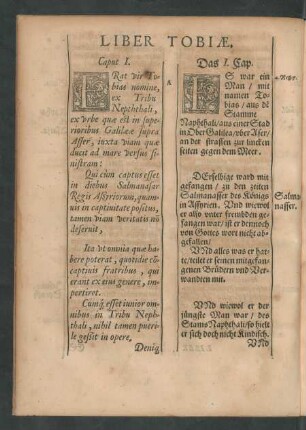 LIBER TOBIÆ.
Caput I.
ERat vir To-
bias nomine,
ex Tribu
Nephthali,
ex vrbe quæ est in supe-
rioribus Galilææ supra
Asser, iuxta viam quæ
ducit ad mare versus si-
nistram:
Qui cùm captus esset
in diebus Salmanasar
Regis Assyriorum, quam-
uis in captiuitate positus,
tamen viam veritatis nō
deseruit,
Ita vt omnia quæ ha-
bere poterat, quotidie cō-
captiuis fratribus, qui
erant ex eius genere, im-
partiret.
Cumq́; esset iunior om-
nibus in Tribu Neph-
thali, nihil tamen pueri-
le gessit in opere,
Deniq́;
A
Das I. Cap.
ES war ein
Man / mit
namen To-
bias / aus dē
Stamme
Naphthali / aus einer Stad
in Ober Galilea / vber Asser /
an der strassen zur lincken
seiten gegen dem Meer.
DErselbige ward mit
gefangen / zu den zeiten
Salmanasser des Königs
in Assyrien. Vnd wiewol
er also vnter frembden ge-
fangen war / ist er dennoch
von Gottes wort nicht ab-
gefallen /
VNd alles was er hat-
te / teilet er seinen mitgefan-
genen Brüdern vnd Ver-
wandten mit.
VNd wiewol er der
jüngste Man war / des
Stams Naphthali / so hielt
er sich doch nicht Kindisch.
VNd
Salma-
nasser.